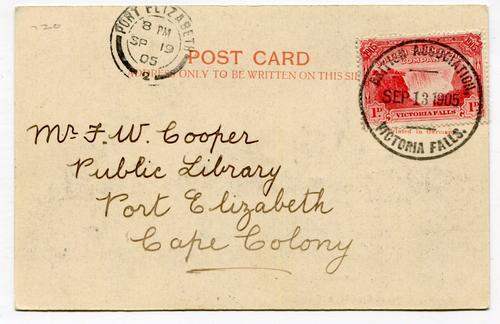 PORT ELIZABETH
8 PM
SP 19
05
2
POST CARD
ADDRESS ONLY TO BE WRITTEN ON THIS SIDE
BRITISH ASSOCIATION
SEP 13 1905
VICTORIA FALLS.
COMPANY
1D 1D
VICTORIA FALLS
Printed in Germany
Mr F. W. Cooper
Public Library
Port Elizabeth
Cape Colony